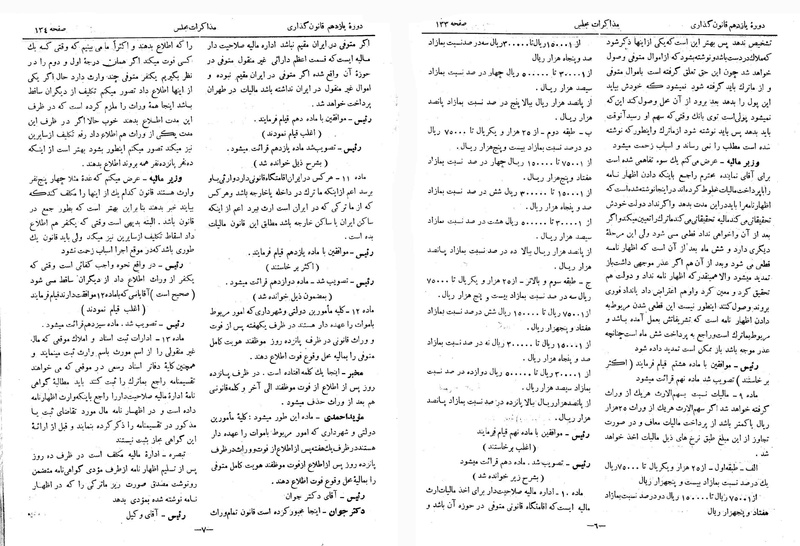 دورهٔ یازدهم قانون گذاری
مذاکرات مجلس
صفحه ۱۳۳
تشخیص ندهد پس بهتر این است که یکی از اینها ذکر شود
خواهد شد چون این حق تعلق گرفته است باموال متوفی
و از ماترك باید گرفته شود نمیشود که خودش بیاید
این پول را بدهد بعد برود از آن محل وصول کند این که
شده است مطلب را نمی رساند و اسباب زحمت میشود
وزیر مالیه - عرض می کنم یك سوء تفاهمی شده است
برای آقای نماینده محترم راجع باینکه دادن اظهار نامه
بعد از آن واخواهی نداد قطعی می شود ولی این مرحلهٔ
دیگری دارد و شش ماه بعد از آن است که اظهار نامه
قطعی می شود و بعد از آن هم اگر عذر موجهی داشت باز
تمدید میشود والا همینقدر که اظهار نامه نداد و دولت هم
تحقیق کرد و معین کرد و او هم اعتراض داد باندادفوری
بروند وصول کنند اینطور نیست این قطعی شدن مربوط به
دادن اظهار نامه است که تشریفاتش بعمل آمده باشد و
مربوط بماترك است و راجع به پرداخت شش ماه است چنانچه
عذر موجه باشد باز ممکن است تمدید داده شود
رئیس - موافقین با ماده هشتم قیام فرمایند (اکثر
بر خاستند) تصویب شد ماده نهم قرائت میشود
ماده ۹ - مالیات نسبت بسهم الارث هریك از وراث
گرفته خواهد شد اگر سهم الارث هریك از وراث ۲۵هزار
ریال یا کمتر باشد از پرداخت مالیات معاف و در صورت
تجاوز از این مبلغ طبق نرخ های ذیل مالیات اخذ خواهد
شد
الف - طبقه اول - از ۲۵ هزار و یکریال تا ۷۵۰۰۰ ریال
یك درصد نسبت بمازاد بیست و پنجهزار ریال
از ۷۵۰۰۱ ریال تا ۱۵۰۰۰۰ ریال دو درصد نسبت بمازاد
هفتاد و پنجهزار ریال
از ۱۵۰۰۰۱ ریال تا ۳۰۰۰۰۰ ریال سه در صد نسبت بمازاد
صد و پنجاه هزار ریال
از ۳۰۰۰۰۱ تا ۵۰۰۰۰۰ ریال چهار در صد نسبت بمازاد
سیصد هزار ریال.
از پانصد هزار ریال بالا پنج در صد نسبت بمازاد
پانصد هزار ریال.
ب - طبقه دوم - از ۲۵ هزار و یکریال تا ۷۵۰۰۰ ریال
دو درصد نسبت بمازاد بیست و پنجهزار ریال.
از ۷۵۰۰۱ تا ۱۵۰۰۰۰ ریال چهار در صد نسبت بمازاد
هفتاد و پنجهزار ریال.
از ۱۵۰۰۰۱ تا ۳۰۰۰۰۰ ریال شش در صد نسبت بمازاد
صد و پنجاه هزار ریال.
از ۳۰۰۰۰۱ تا ۵۰۰۰۰۰ ریال هشت در صد نسبت بمازاد
سیصد هزار ریال.
از پانصد هزار ریال بالا ده در صد نسبت بمازاد پانصد
هزار ریال.
ج - طبقه سوم و بالاتر - از ۲۵ هزار و یکریال تا ۷۵۰۰۰
ریال سه در صد نسبت بمازاد بیست و پنج هزار ریال.
از ۷۵۰۰۱ ریال تا ۱۵۰۰۰۰ ریال شش درصد نسبت بمازاد
هفتاد و پنجهزار ریال.
از ۱۵۰۰۰۱ ریال تا ۳۰۰۰۰۰ ریال نه در صد نسبت بمازاد
صد و پنجاه هزار ریال.
از ۳۰۰۰۰۱ ریال تا ۵۰۰۰۰۰ ریال دوازده در صد نسبت
بمازاد سیصد هزار ریال.
از پانصدهزار ریال ببالا پانزده در صد نسبت بمازاد پانصد
هزار ریال.
رئیس - موافقین با ماده نهم قیام فرمایند
(اغلب برخاستند)
رئیس - تصویب شد. ماده دهم قرائت میشود
(بشرح زیر خوانده شد)
ماده ۱۰ - اداره مالیه صلاحیت دار برای اخذ مالیات ارث
مالیه ایست که اقامتگاه قانونی متوفی در حوزه آن باشد و
—٦—
دورهٔ یازدهم قانون گذاری
مذاکرات مجلس
صفحه ۱۳٤
اگر متوفی در ایران مقیم نباشد اداره مالیه صلاحیت دار
مالیه ایست که قسمت اعظم دارائی غیر منقول متوفی در
حوزهٔ آن واقع شده اگر متوفی در ایران مقیم نبوده و
اموال غیر منقول در ایران نداشته باشد مالیات در طهران
پرداخت خواهد شد.
رئیس - موافقین با ماده دهم قیام فرمایند.
(اغلب قیام نمودند)
رئیس - تصویب شد ماده یازدهم قرائت میشود.
(بشرح ذیل خوانده شد)
ماده ۱۱ - هرکس در ایران اقامتگاه قانونی دارد وارثی یا و
برسد اعم از اینکه ما ترك در داخله یا خارجه باشد و هر کس
که از ما ترکی که در ایران است ارث ببرد اعم از اینکه
ساکن ایران یا ساکن خارجه باشد مطابق این قانون مالیات
بده است.
رئیس - موافقین با ماده یازدهم قیام فرمایند.
(اکثر بر خاستند)
رئیس - تصویب شد - ماده دوازدهم قرائت میشود.
(بمضمون ذیل خوانده شد)
ماده ۱۲ - کلیه مأمورین دولتی و شهرداری که امور مربوط
باموات را عهده دار هستند در ظرف یکهفته پس از فوت
و وراث قانونی در ظرف پانزده روز موظفند هویت کامل
متوفی را بمالیه محل وقوع فوت اطلاع دهند.
مخبر - اینجا یك کلمه افتاده است. در ظرف پانزده
روز پس از اطلاع از فوت موظفند الی آخر و کلمه قانونی
هم بعد از وراث حذف میشود.
مؤیداحمدی - ماده این طور میشود: کلیهٔ مأمورین
دولتی و شهرداری که امور مربوط باموات را عهده دار
هستند در ظرف یك هفته پس از اطلاع از فوت و وراث در ظرف
پانزده روز پس از اطلاع از فوت موظفند هویت کامل متوفی
را بمالیهٔ محل وقوع فوت اطلاع دهند.
رئیس - آقای دکتر جوان
دکتر جوان - اینجا مجبور کرده است قانون تمام وراث
را که اطلاع بدهند و اکثراً ما می بینیم که وقتی که یك
کسی فوت میکند اگر همان درجهٔ اول و دوم را در
نظر بگیریم یکنفر متوفی چند وارث دارد حال اگر یکی
از اینها اطلاع داد تصور میکنم تکلیف از دیگران ساقط
باشد اینجا همهٔ وراث را ملزم کرده است که در ظرف
این مدت اطلاع بدهند خوب حالا اگر در ظرف این
مدت یکی از وراث هم اطلاع داد رفع تکلیف از سایرین
نیز میکند تصور میکنم اینطور بشود بهتر است از اینکه
ده نفر پانزده نفر همه بروند اطلاع بدهند.
وزیر مالیه - عرض میکنم که عدهٔ مثلا چهار پنج نفر
وارث هستند قانون کدام یك از اینها را مکلف کند که
بیایند خبر بدهند بنا براین بهتر است که بطور جمع در
قانون باشد. البته بدیهی است وقتی که یکنفر هم اطلاع
داد اسقاط تکلیف از سایرین نیز میکند ولی باید قانون یك
طوری باشد که در موقع اجرا اسباب زحمت نشود
رئیس - در واقع نحوه واجب کفائی است وقتی که
یکنفر از وراث اطلاع داد از دیگران ساقط می شود
(صحیح است) آقایانی که با ماده ۱۲ موافقت دارند قیام فرمایند
(اغلب قیام نمودند)
رئیس - تصویب شد. ماده سیزدهم قرائت میشود.
ماده ۱۳ - ادارات ثبت اسناد و املاك موقعی مال
غیر منقولی را از اسم مورث باسم وارث ثبت مینمایند و
همچنین کلیهٔ دفاتر اسناد رسمی در موقعی که می خواهند
تقسیمنامه راجع بماترك را ثبت کنند باید مطالبهٔ گواهی
نامهٔ ادارهٔ مالیه صلاحیت دار را راجع باینکه وارث اظهار نامه
داده است و در اظهار نامه مال مورد تقاضای ثبت یا
مذکور در تقسیمنامه را ذکر کرده بنمایند و قبل از ارائهٔ
این گواهی مجاز بثبت نیستند
تبصره - ادارهٔ مالیه مکلف است در ظرف ده روز
پس از تسلیم اظهار نامه از طرف مؤدی گواهی نامه متضمن
رونوشت مصدق صورت ریز ماترکی را که در اظهار
نامه نوشته شده بمؤدی بدهد
رئیس - آقای وکیل
—۷—